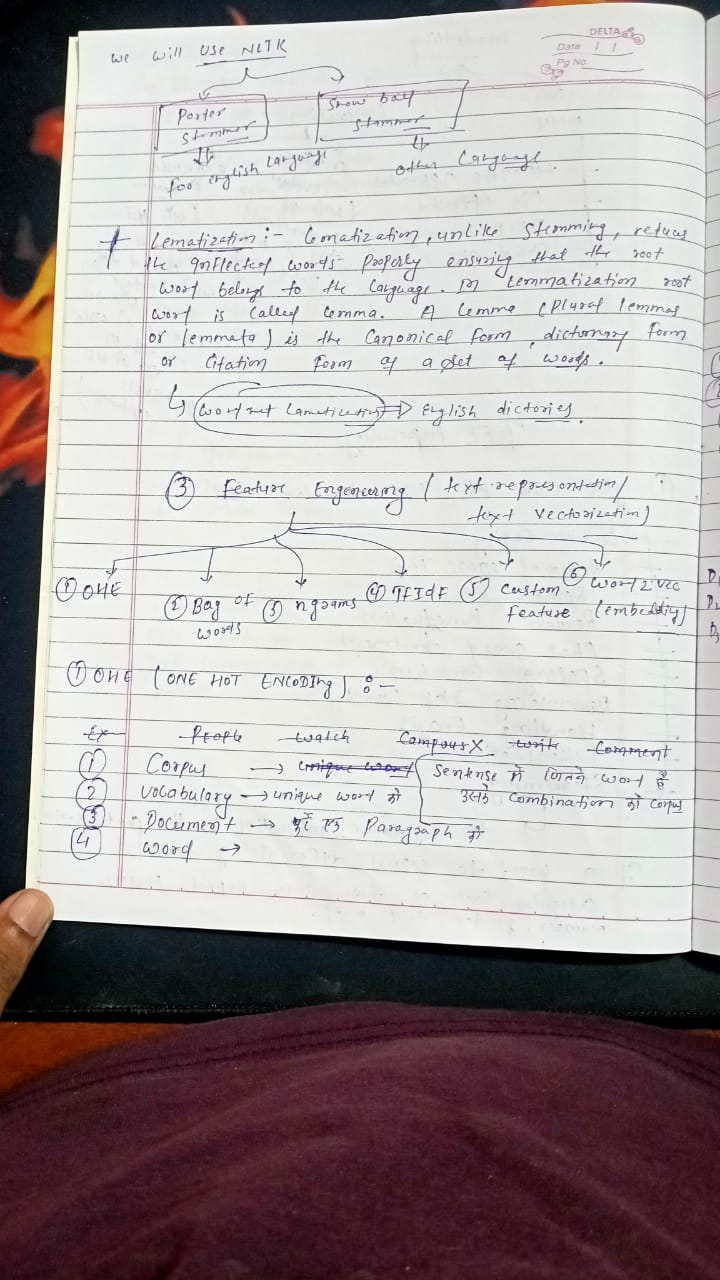 DELTA
Date / /
Pg No
we will use NLTK
Porter Stemmer
Snow ball Stammer
for english Language
other Language.
Lematization :- Lematization, unlike Stemming, reduces
the Inflected words properly ensuring that the root
word belogs to the language. In Lemmatization root
word is Called Lemma. A Lemma (Plural lemmas
or lemmata) is the Canonical form, dictionary form
or Citation form of a set of words.
↳ wordnet Lamatization ⇒ English dictories.
③ Feature Engeneering (text represontation/
text Vectorization)
① OHE
② Bag of words
③ ngrams
④ TFIdF
⑤ Custom feature
⑥ Word2vec (embedding)
D₁
D₂
D₃
① OHE (ONE HOT ENCODING) :-
Ex People watch CampusX write Comment
① Corpus → unique word Sentense में जितने word है
उसके combination को corpus
② vocabulary → unique word को
③ Document → Paragraph को
④ word →